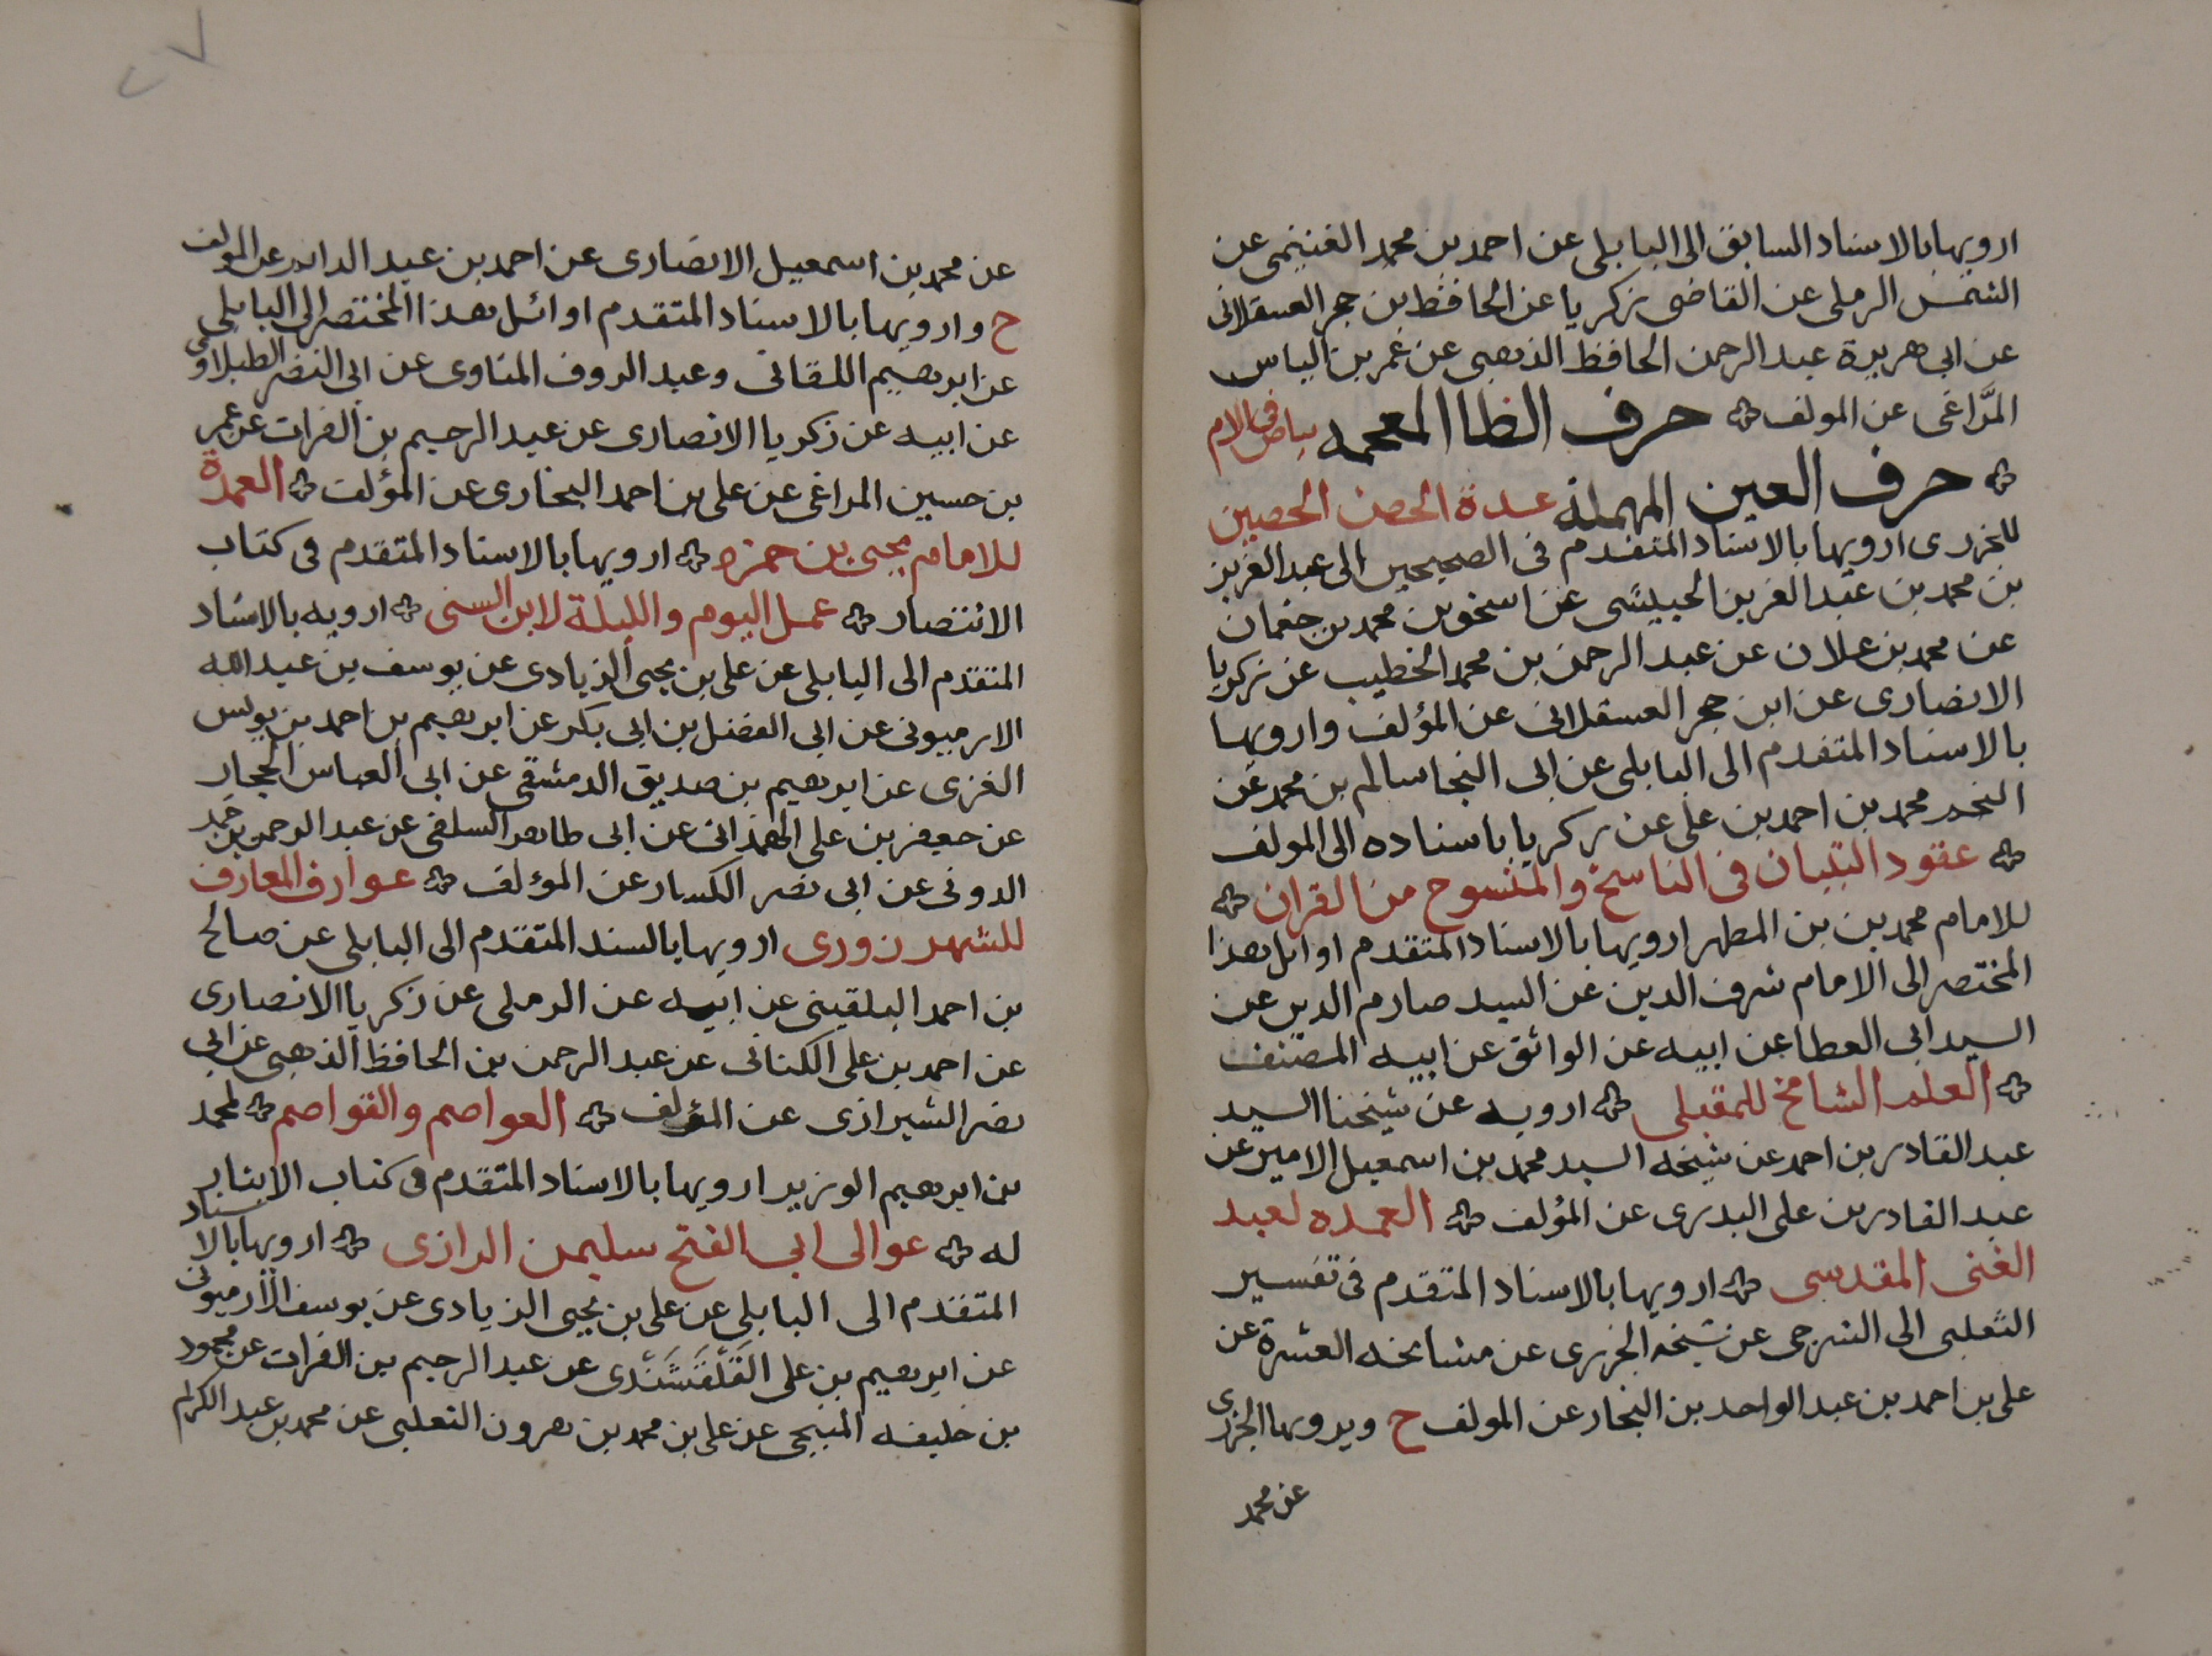 ارويها بالاسناد السابق الى البابلى عن احمد بن محمد الغنيمى عن
الشمس الرملى عن القاضى زكريا عن الحافظ بن حجر العسقلانى
عن ابى هريرة عبد الرحمن الحافظ الذهبى عن عمر بن الياس
المراغى عن المولف حرف الظا المعجمه بياض فى الام
حرف العين المهملة عدة الحصن الحصين
للجزرى ارويها بالاسناد المتقدم فى الصحيحين الى عبد العزيز
بن محمد بن عبد العزيز الحبيشى عن اسحق بن محمد بن جغمان
عن محمد بن علان عن عبد الرحمن بن محمد الخطيب عن زكريا
الانصارى عن ابن حجر العسقلانى عن المؤلف وارويها
بالاسناد المتقدم الى البابلى عن ابى النجا سالم بن محمد عن
النجم محمد بن احمد بن على عن زكريا باسناده الى المولف
عقود التبيان فى الناسخ والمنسوخ من القران
للامام محمد بن بن المطهر ارويها بالاسناد المتقدم اوايل هذا
المختصر الى الامام شرف الدين عن السيد صارم الدين عن
السيد ابى العطا عن ابيه عن الواثق عن ابيه المصنف
العلم الشامخ للمقبلى ارويه عن شيخنا السيد
عبد القادر بن احمد عن شيخه السيد محمد بن اسمعيل الامير عن
عبد القادر بن على البدرى عن المؤلف العمده لعبد
الغنى المقدسى ارويها بالاسناد المتقدم فى تفسير
الثعلبى الى الشرجى عن شيخه الجزرى عن مشايخه العشرة عن
على بن احمد بن عبد الواحد بن النجار عن المولف ح ويرويها الجزرى
عن محمد
٢٧
عن محمد بن اسمعيل الانصارى عن احمد بن عبد الدايم عن المولف
ح وارويها بالاسناد المتقدم اوائل هذا المختصر الى البابلى
عن ابرهيم اللقانى وعبد الروف المناوى عن ابى النصر الطبلاوى
عن ابيه عن زكريا الانصارى عن عبد الرحيم بن الفرات عن عمر
بن حسين المراغى عن على بن احمد البخارى عن المؤلف العمدة
للامام يحيى بن حمزه ارويها بالاسناد المتقدم فى كتاب
الانتصار عمل اليوم والليلة لابن السنى ارويه بالاسناد
المتقدم الى البابلى عن على بن يحيى الزيادى عن يوسف بن عبد الله
الارميونى عن ابى الفضل بن ابى بكر عن ابرهيم بن احمد بن يونس
الغزى عن ابرهيم بن صديق الدمشقى عن ابى العباس الحجار
عن جعفر بن على الهمذانى عن ابى طاهر السلفى عن عبد الرحمن بن حمد
الدونى عن ابى نصر الكسار عن المؤلف عوارف المعارف
للشهرزورى ارويها بالسند المتقدم الى البابلى عن صالح
بن احمد البلقينى عن ابيه عن الرملى عن زكريا الانصارى
عن احمد بن على الكنانى عن عبد الرحمن بن الحافظ الذهبى عن ابى
نصر الشيرازى عن المؤلف العواصم والقواصم لمحمد
بن ابرهيم الوزير ارويها بالاسناد المتقدم فى كتاب الايثار
له عوالى ابى الفتح سليمن الرازى ارويها بالاسناد
المتقدم الى البابلى عن على بن يحيى الزيادى عن يوسف الارميونى
عن ابرهيم بن على القَلْقَشَنْدى عن عبد الرحيم بن الفرات عن محمود
بن خليفه المنبجى عن على بن محمد بن هرون الثعلبى عن محمد بن عبد الكرام